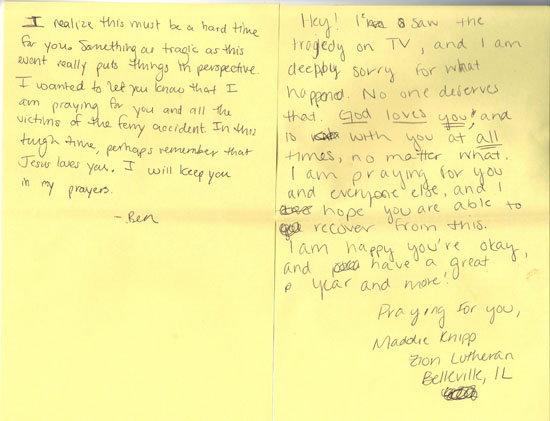 I realize this must be a hard time
for you. Something as tragic as this
event really puts things in perspective.
I wanted to let you know that I
am praying for you and all the
victims of the ferry accident. In this
tough time, perhaps remember that
Jesus loves you. I will keep you
in my prayers.
-Ben
Hey! I saw the
tragedy on TV, and I am
deeply sorry for what
happened. No one deserves
that. God loves you, and
is with you at all
times, no matter what.
I am praying for you
and everyone else, and I
hope you are able to
recover from this.
I am happy you're okay,
and have a great
year and more!
Praying for you,
Maddie Knipp
Zion Lutheran
Belleville, IL